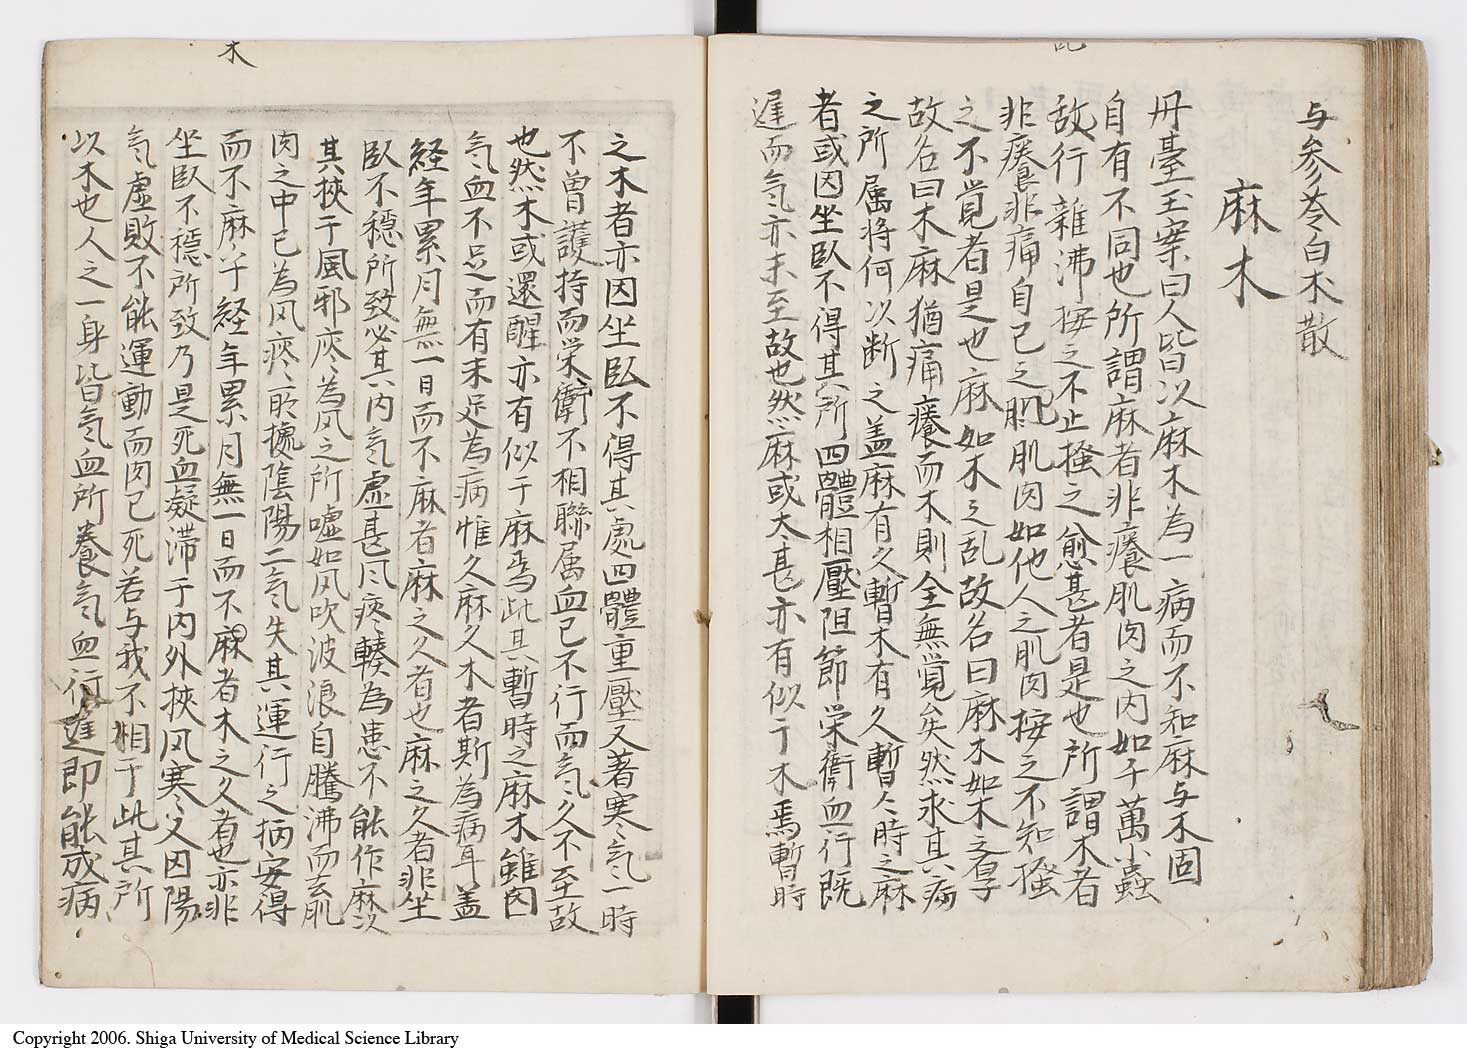 与参苓白朮散
麻木
丹臺玉案曰人皆以麻木為一病而不知麻与木固
自有不同也所謂麻者非癢肌肉之内如千萬小蟲
敌行雜沸按之不止搔之愈甚者是也所謂木者
非癢非痛自己之肌肌肉如他人之肌肉按之不知搔
之不覚者是也麻如木之乱故名曰麻木如木之
故名曰木麻猶痛癢而木則全無覚矣然求其病
之所属将何以断之盖麻有久暫木有久暫々時之麻
者或因坐臥不得其所四體相壓阻節栄衛血行既
遅而気亦未至故也然麻或太甚亦有似于木焉暫時
之木者亦因坐臥不得其處四體重壓又著寒々気一時
不曽護持而栄衛不相聯属血已不行而気久不至故
也然木或還醒亦有似于麻焉此其暫時之麻木雖因
気血不足而有未足為病惟久麻久木者斯為病耳盖
経年累月無一日而不麻者麻之久者也麻之久者非坐
臥不穏所致必其内気虚甚風痰輳為患不能作麻次
其挾于風邪痰為风之所嘘如风吹波浪自騰沸而去肌
肉之中已為风痰所擾陰陽二気失其運行之柄安得
而不麻乎経年累月無一日而不麻者木之久者也亦非
坐臥不穏所致乃是死血凝滞于内外挾风寒々又因陽
気虚敗不能運動而肉已死若与我不相于此其所
以木也人之一身皆気血所養気血行遅即能成病
木
Copyright 2006. Shiga University of Medical Science Library